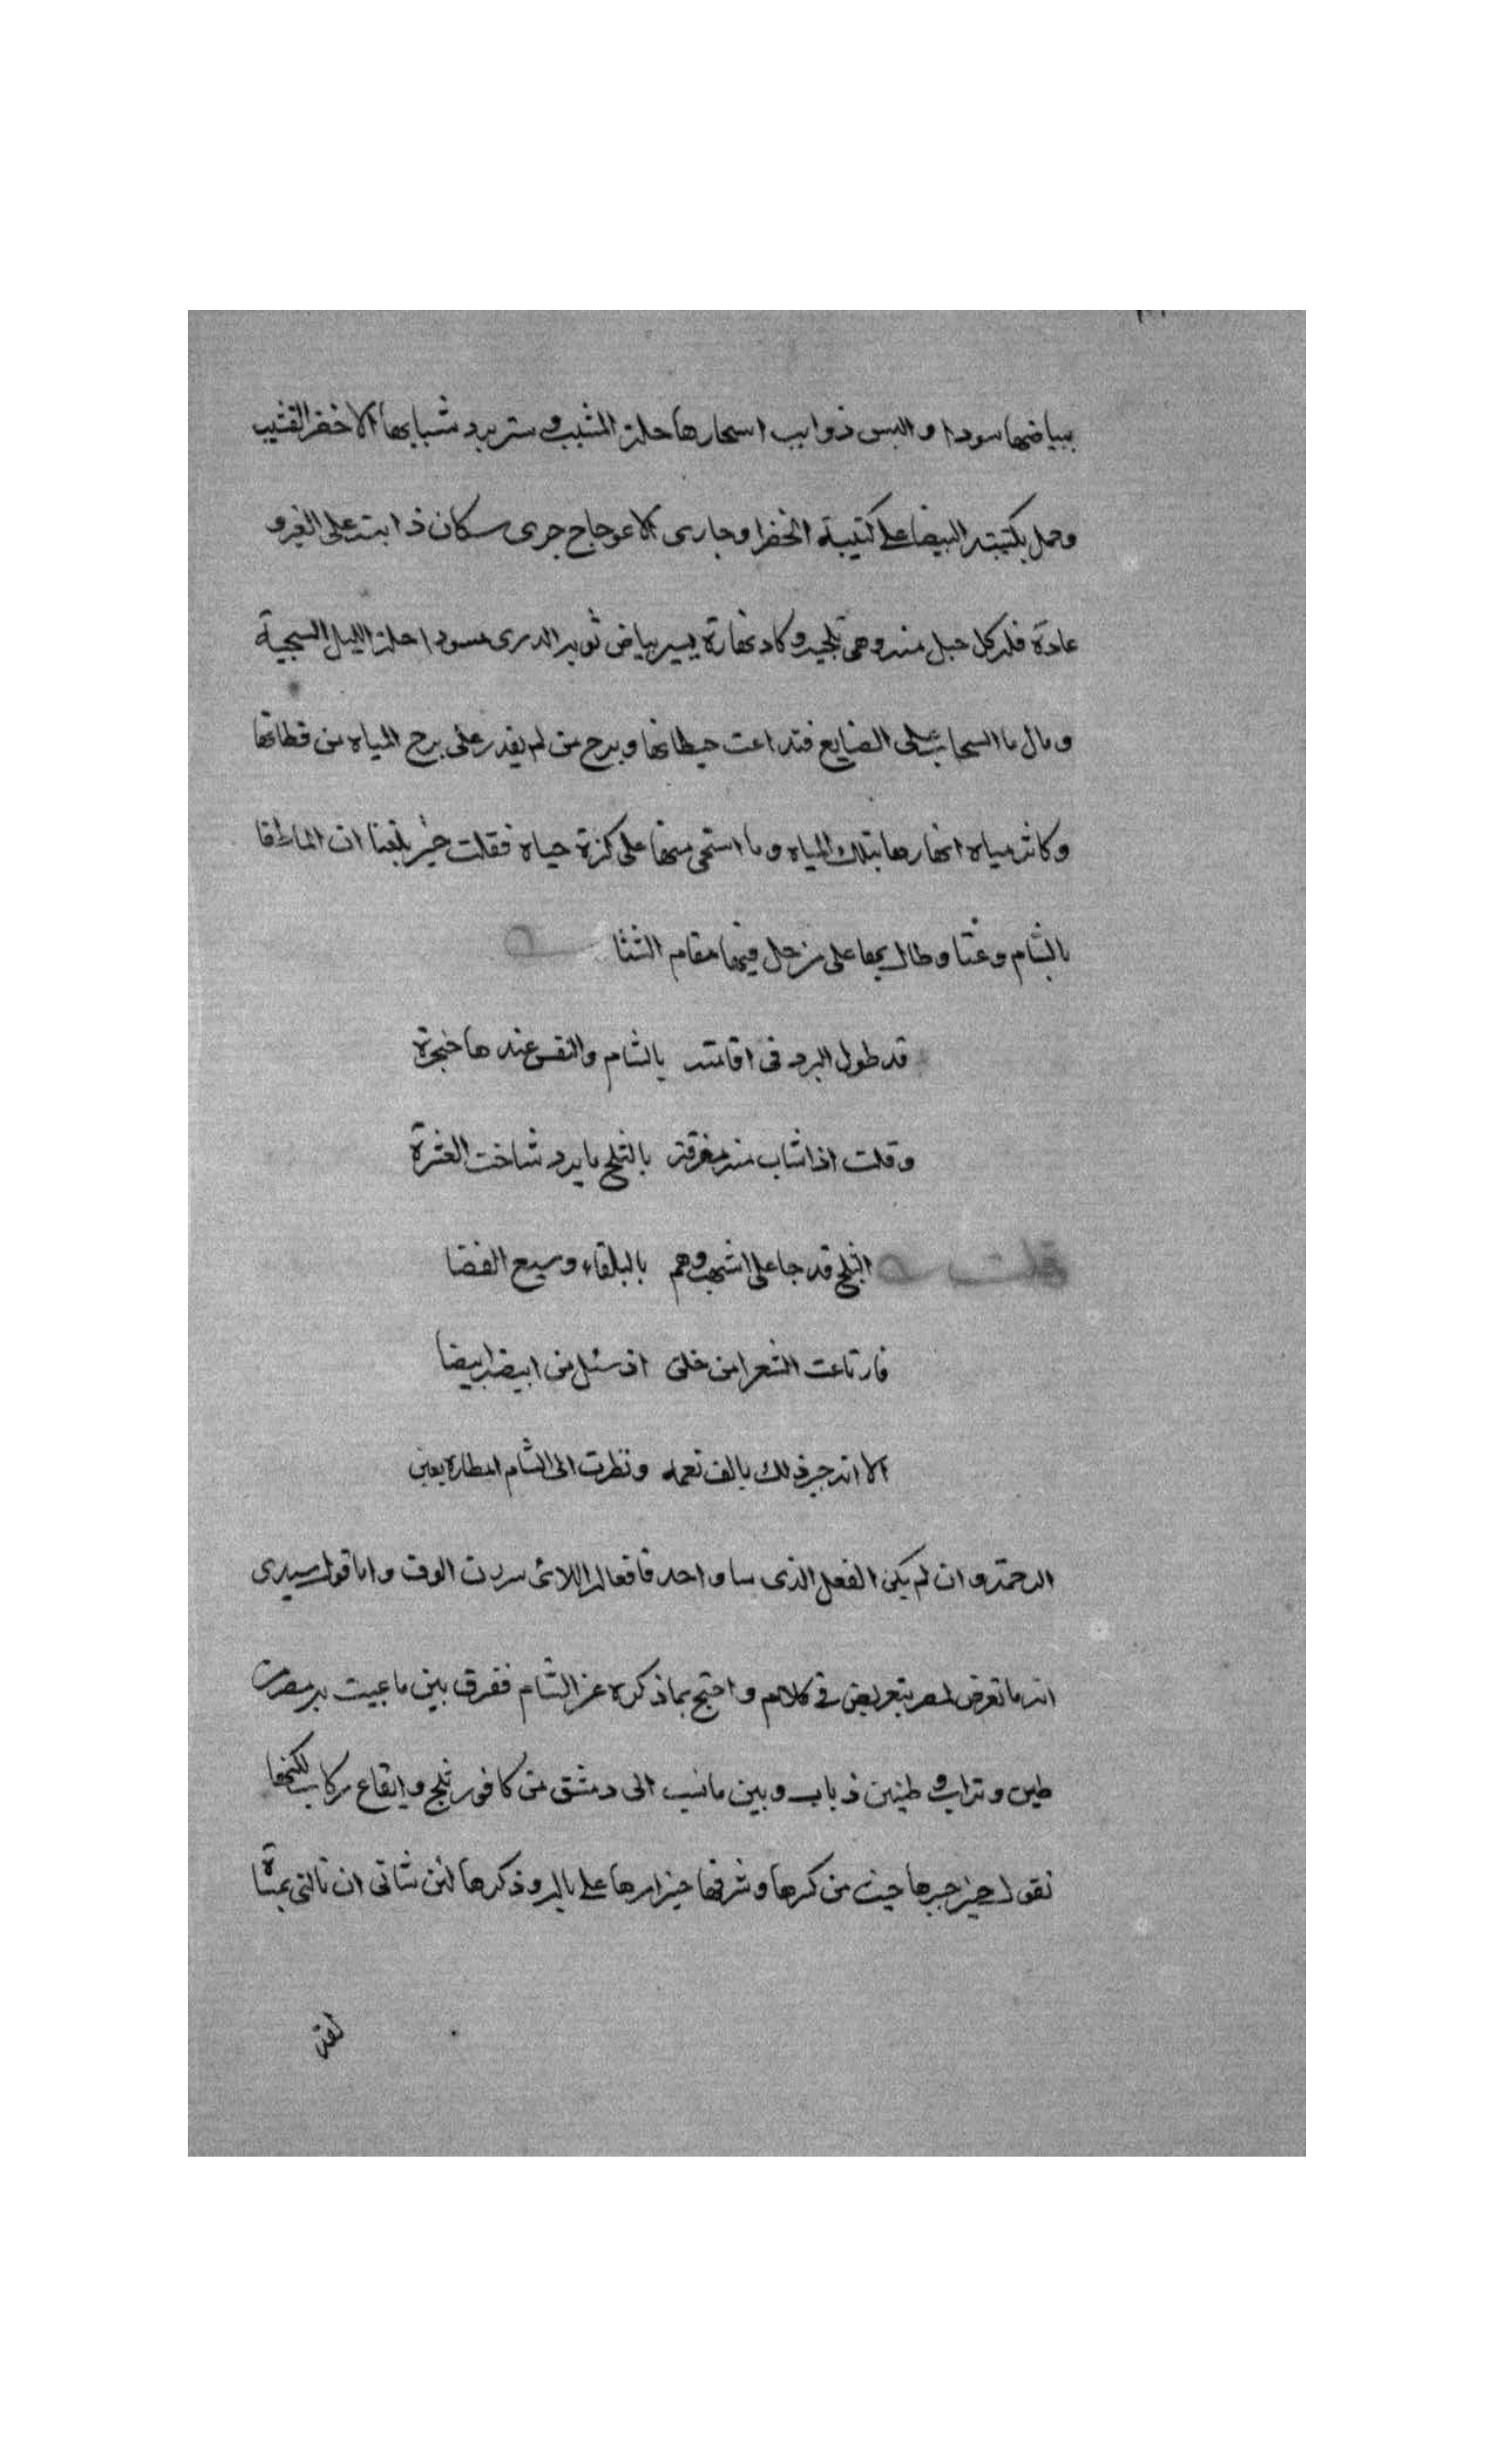 ببياضها سودا والبس ذوايب اسحارها حلة المشيب وستر برد شبابها الاخضر القشيب
وحمل بكتيبته البيضا على كتيبة الخضرا وجارى الاعوجاج جرى سكان ذابت على الغير و
عادة فلم كل جبل منه وهى ثلجيه وكاد نهاره يسير بياض ثوبه الدرى مسودا حلة الليل السجية
ومال ما السحاب على الضايع فتداعت حيطانها وبرح من لم يقدر على برح المياه من قطانها
وكاثر مياه انهارها بتلك المياه وما استحى منها على كثرة حياه فقلت حين بلغنا ان الما طغا
بالشام وعتا وطال بها على زحل فيها مقام الشتا
قد طول البرد فى اقامته بالشام والنفس عندها ضجرة
وقلت اذ شاب منه مفرقه بالثلج يا برد شاخت العشرة
قلت الثلج قد جا على اشهب وهم بالبلقاء وسيع الفضا
فارتاعت الشعرا من خلق اذ سل من ابيضه ابيضا
الا انه جبر ذلك بالف نعمه ونظرت الى الشام امطاره بعين
الرحمة وان لم يكن الفعل الذى سا واحد فافعاله اللائى سررن الوف واما قول سيدى
انه ما تعرض لمصر بتعريض فى كلام واحتج بما ذكره عن الشام ففرق بين ما عيبت به مصر من
طين وتراب وطنين ذباب وبين ما نسب الى دمشق من كافور ثلج وايقاع ركاب لكنها
نقول حين جبرها حيث من كرها وشرفها حين امرها على باله وذكرها لئن شانى ان نالنى بمساة
لقد